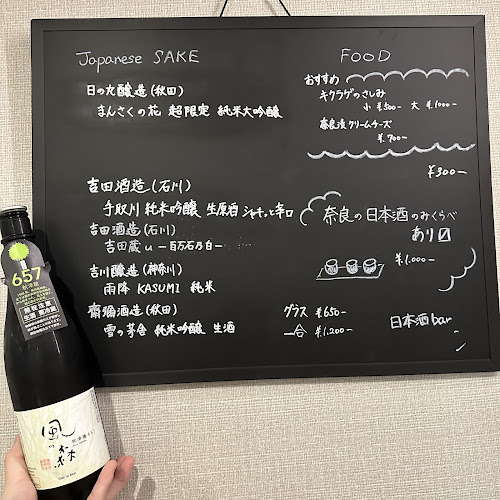 Japanese SAKE
日の丸醸造(秋田)
まんさくの花 超限定 純米大吟醸
吉田酒造(石川)
手取川 純米吟醸 生原酒 シャキッと辛口
吉田酒造(石川)
吉田蔵u ー百万石乃白ー
吉川醸造(神奈川)
雨降 KASUMI 純米
齋彌酒造(秋田)
雪の茅舎 純米吟醸 生酒
グラス ¥650-
一合 ¥1,200-
FOOD
おすすめ
キクラゲのさしみ
小 ¥500- 大 ¥1000-
奈良漬クリームチーズ
¥700-
¥300-
奈良の日本酒のみくらべ
あり〼
¥1,000-
日本酒bar
657
開栓注意
生酒 要冷蔵
風の森